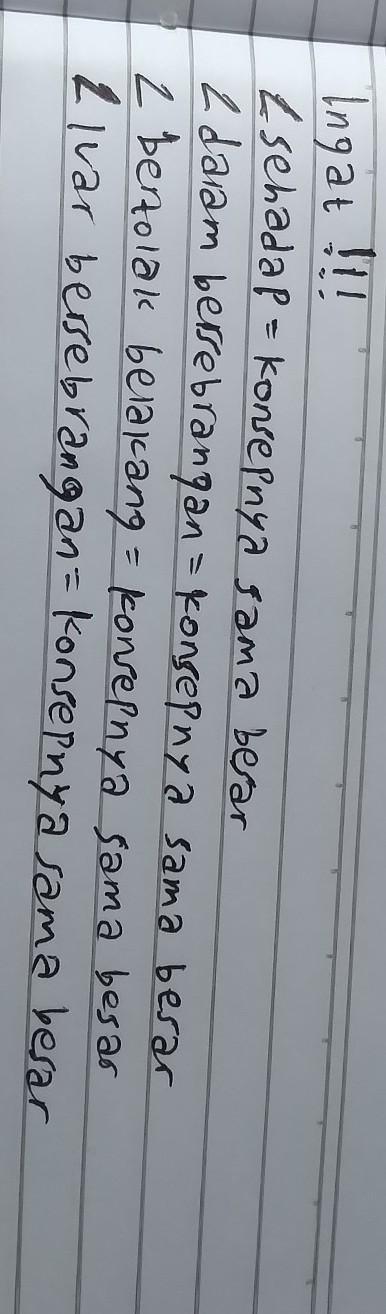 Ingat !!!
∠ sehadap = konsepnya sama besar
∠ dalam bersebrangan = konsepnya sama besar
∠ bertolak belakang = konsepnya sama besar
∠ luar bersebrangan = konsepnya sama besar